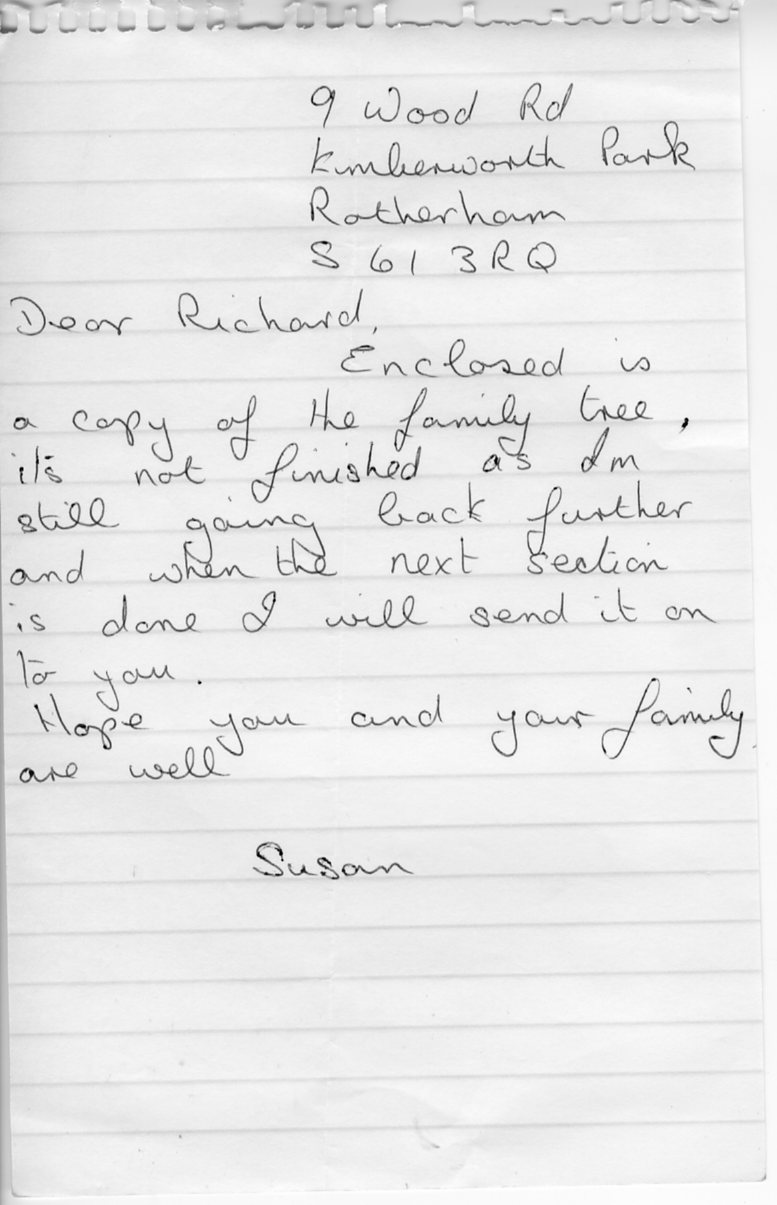 9 Wood Rd
Kimberworth Park
Rotherham
S61 3RQ
Dear Richard,
Enclosed is
a copy of the family tree,
it's not finished as Im
still going back further
and when the next section
is done I will send it on
to you.
Hope you and your family
are well
Susan